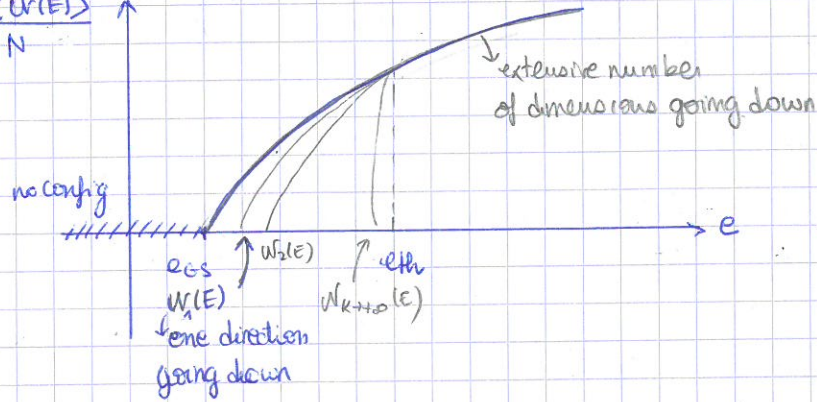 ⟨N(E)⟩
N
extensive number
of dimensions going down
no config
e
e_GS
N_2(E)
e_th
N_1(E)
N_{K→+∞}(E)
one direction
going down